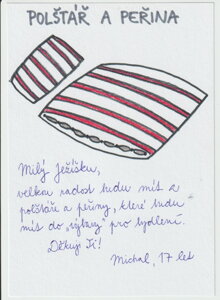 POLŠTÁŘ A PEŘINA
Milý Ježíšku,
velkou radost budu mít z
polštáře a peřiny, které budu
mít do „výbavy" pro bydlení.
Děkuji Ti!
Michal, 17 let